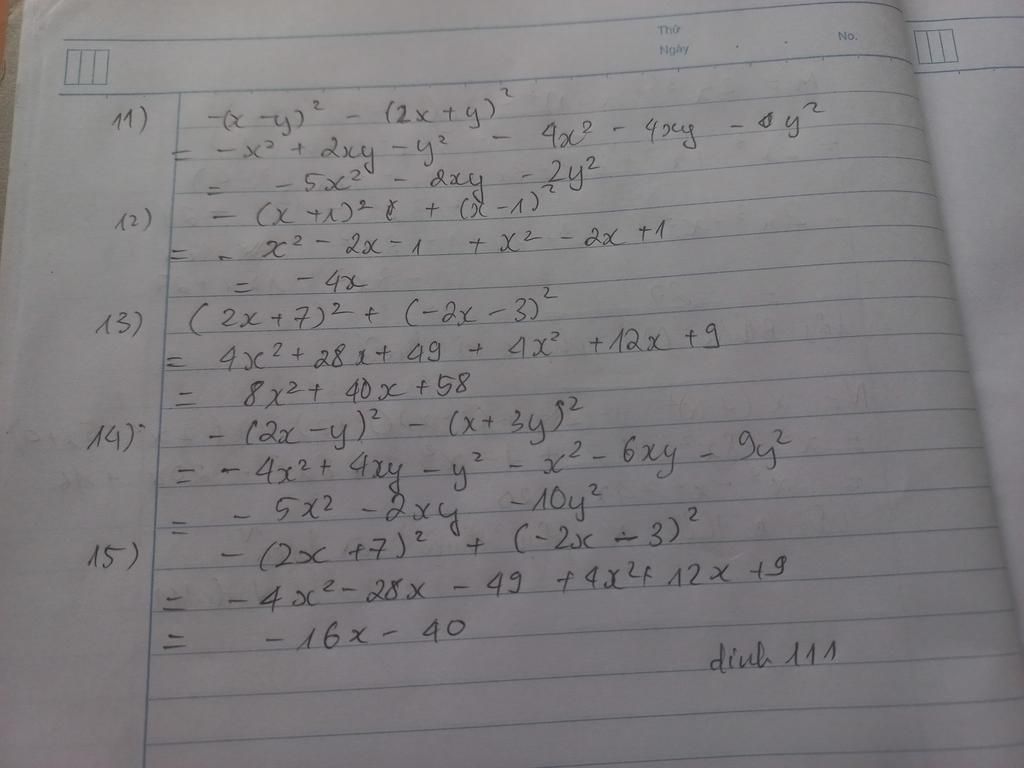 Thứ
Ngày . . No.
11) -(x-y)² - (2x+y)²
= -x² + 2xy - y² - 4x² - 4xy - y²
= -5x² - 2xy - 2y²
12) -(x+1)² + (x-1)²
= - x² - 2x - 1 + x² - 2x + 1
= -4x
13) (2x+7)² + (-2x-3)²
= 4x² + 28x + 49 + 4x² + 12x + 9
= 8x² + 40x + 58
14) -(2x-y)² - (x+3y)²
= -4x² + 4xy - y² - x² - 6xy - 9y²
= -5x² - 2xy - 10y²
15) -(2x+7)² + (-2x-3)²
= -4x² - 28x - 49 + 4x² + 12x + 9
= -16x - 40
dinh 111